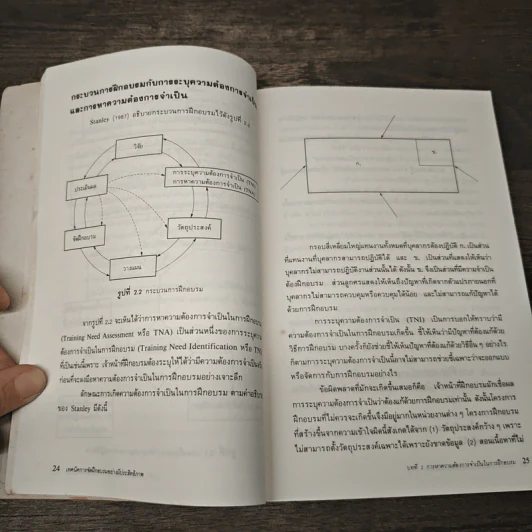 กระบวนการฝึกอบรมกับการระบุความต้องการจำเป็น
และการหาความต้องการจำเป็น
Stanley (1987) อธิบายกระบวนการฝึกอบรมไว้ดังรูปที่ 2.2
วิจัย
การระบุความต้องการจำเป็น (TNI)
การหาความต้องการจำเป็น (TNA)
ประเมินผล
วัตถุประสงค์
จัดฝึกอบรม
วางแผน
รูปที่ 2.2 กระบวนการฝึกอบรม
จากรูปที่ 2.2 จะเห็นได้ว่าการหาความต้องการจำเป็นในการฝึกอบรม
(Training Need Assessment หรือ TNA) เป็นส่วนหนึ่งของการระบุความ
ต้องการจำเป็นในการฝึกอบรม (Training Need Identification หรือ TNI)
ที่เป็นเช่นนี้เพราะ เจ้าหน้าที่ฝึกอบรมต้องระบุให้ได้ว่ามีความต้องการจำเป็น
ก่อนที่จะลงมือหาความต้องการจำเป็นในการฝึกอบรมอย่างเจาะลึก
ลักษณะการเกิดความต้องการจำเป็นในการฝึกอบรม ตามคำอธิบาย
ของ Stanley มีดังนี้
24 เทคนิคการจัดฝึกอบรมอย่างมีประสิทธิภาพ
ก.
ข.
กรอบสี่เหลี่ยมใหญ่แทนงานทั้งหมดที่บุคลากรต้องปฏิบัติ ก. เป็นส่วน
ที่แทนงานที่บุคลากรสามารถปฏิบัติได้ และ ข. เป็นส่วนที่แสดงให้เห็นว่า
บุคลากรไม่สามารถปฏิบัติงานส่วนนั้นได้ ดังนั้น ข. จึงเป็นส่วนที่มีความจำเป็น
ต้องฝึกอบรม ส่วนลูกศรแสดงให้เห็นถึงปัญหาที่เกิดจากตัวแปรภายนอกที่
บุคลากรไม่สามารถควบคุมหรือควบคุมได้น้อย และไม่สามารถแก้ปัญหาได้
ด้วยการฝึกอบรม
การระบุความต้องการจำเป็น (TNI) เป็นการบอกให้ทราบว่ามี
ความต้องการจำเป็นในการฝึกอบรมเกิดขึ้น ชี้ให้เห็นว่ามีปัญหาที่ต้องแก้ด้วย
วิธีการฝึกอบรม บางครั้งก็ยังช่วยชี้ให้เห็นปัญหาที่ต้องแก้ด้วยวิธีอื่น ๆ อย่างไร
ก็ตามการระบุความต้องการจำเป็นนี้อาจไม่สามารถช่วยชี้เฉพาะว่าจะออกแบบ
หรือจัดการกับการฝึกอบรมอย่างไร
ข้อผิดพลาดที่มักจะเกิดขึ้นเสมอก็คือ เจ้าหน้าที่ฝึกอบรมมักเชื่อผล
การระบุความต้องการจำเป็นว่าต้องแก้ด้วยการฝึกอบรมเท่านั้น ดังนั้นโครงการ
ฝึกอบรมที่ไม่ควรจะเกิดขึ้นจึงมีอยู่มากในหน่วยงานต่าง ๆ โครงการฝึกอบรม
ที่สร้างขึ้นจากความเข้าใจผิดนี้สังเกตได้จาก (1) วัตถุประสงค์กว้าง ๆ เพราะ
ไม่สามารถตั้งวัตถุประสงค์เฉพาะได้เพราะยังขาดข้อมูล (2) สอนเนื้อหาที่ไม่
บทที่ 2 การหาความต้องการจำเป็นในการฝึกอบรม 25